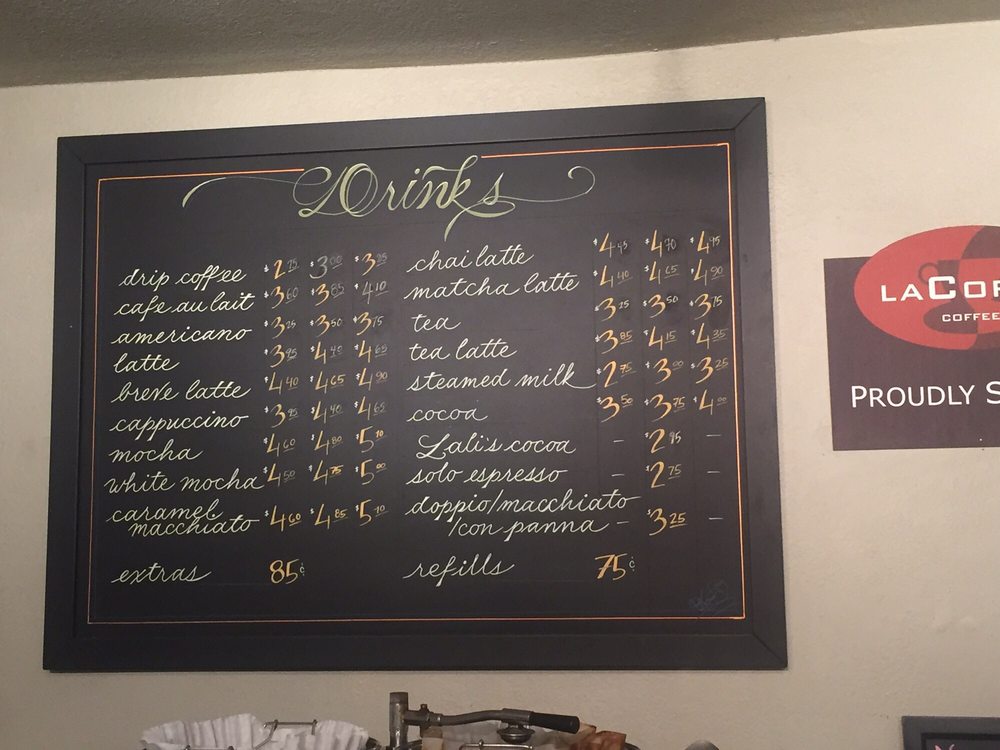 Drinks
drip coffee $2 75 $3 00 $3 25
cafe au lait $3 60 $3 85 $4 10
americano $3 25 $3 50 $3 75
latte $3 95 $4 40 $4 65
breve latte $4 40 $4 65 $4 90
cappuccino $3 95 $4 40 $4 65
mocha $4 60 $4 80 $5 10
white mocha $4 50 $4 75 $5 00
caramel
macchiato $4 60 $4 85 $5 10
extras 85¢
chai latte $4 45 $4 70 $4 95
matcha latte $4 40 $4 65 $4 90
tea $3 25 $3 50 $3 75
tea latte $3 85 $4 15 $4 35
steamed milk $2 75 $3 00 $3 25
cocoa $3 50 $3 75 $4 00
Lali's cocoa – $2 95 –
solo espresso – $2 75 –
doppio/macchiato
/con panna – $3 25 –
refills 75¢
COFFEE
PROUDLY